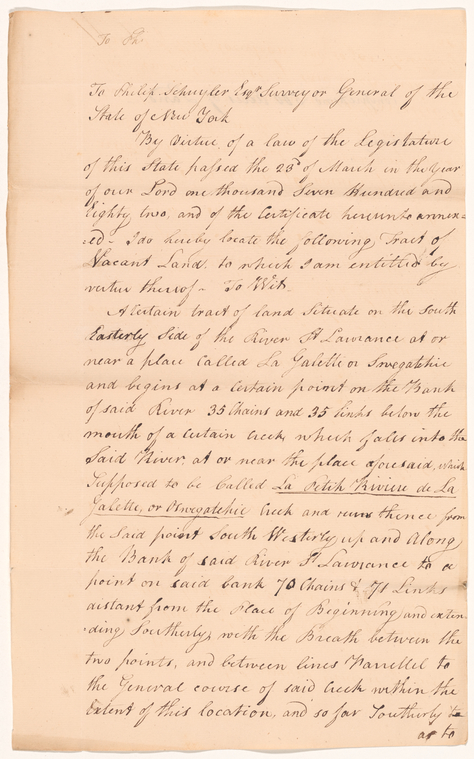 To Phi
To Philip Schuyler Esqr. Surveyor General of the
State of New York
By Virtue of a law of the Legislature
of this State passed the 23d of March in the Year
of our Lord one thousand Seven Hundred and
Eighty two, and of the Certificate hereunto annex-
ed - I do hereby locate the following Tract of
Vacant Land, to which I am entitled by
vertue thereof - To Wit
A Certain tract of land Situate on the South
Easterly Side of the River St Lawrance at or
near a place Called La Galette or Swegatchie
and begins at a Certain point on the Bank
of said River 35 Chains and 35 links below the
mouth of a Certain Creek, which falls into the
Said River, at or near the place aforesaid, which
Supposed to be Called La Petith Riviere de La
Galette, or Oswegatchie Creek and runs thence from
the Said point South Westerly up and Along
the Bank of said River St Lawrance to a
point on said bank 70 Chains & 71 Links
distant from the Place of Beginning and exten
ding Southerly, with the Breath between the
two points, and between lines Parrellel to
the General course of said Creek within the
Extent of this location, and so far Southerly
as to